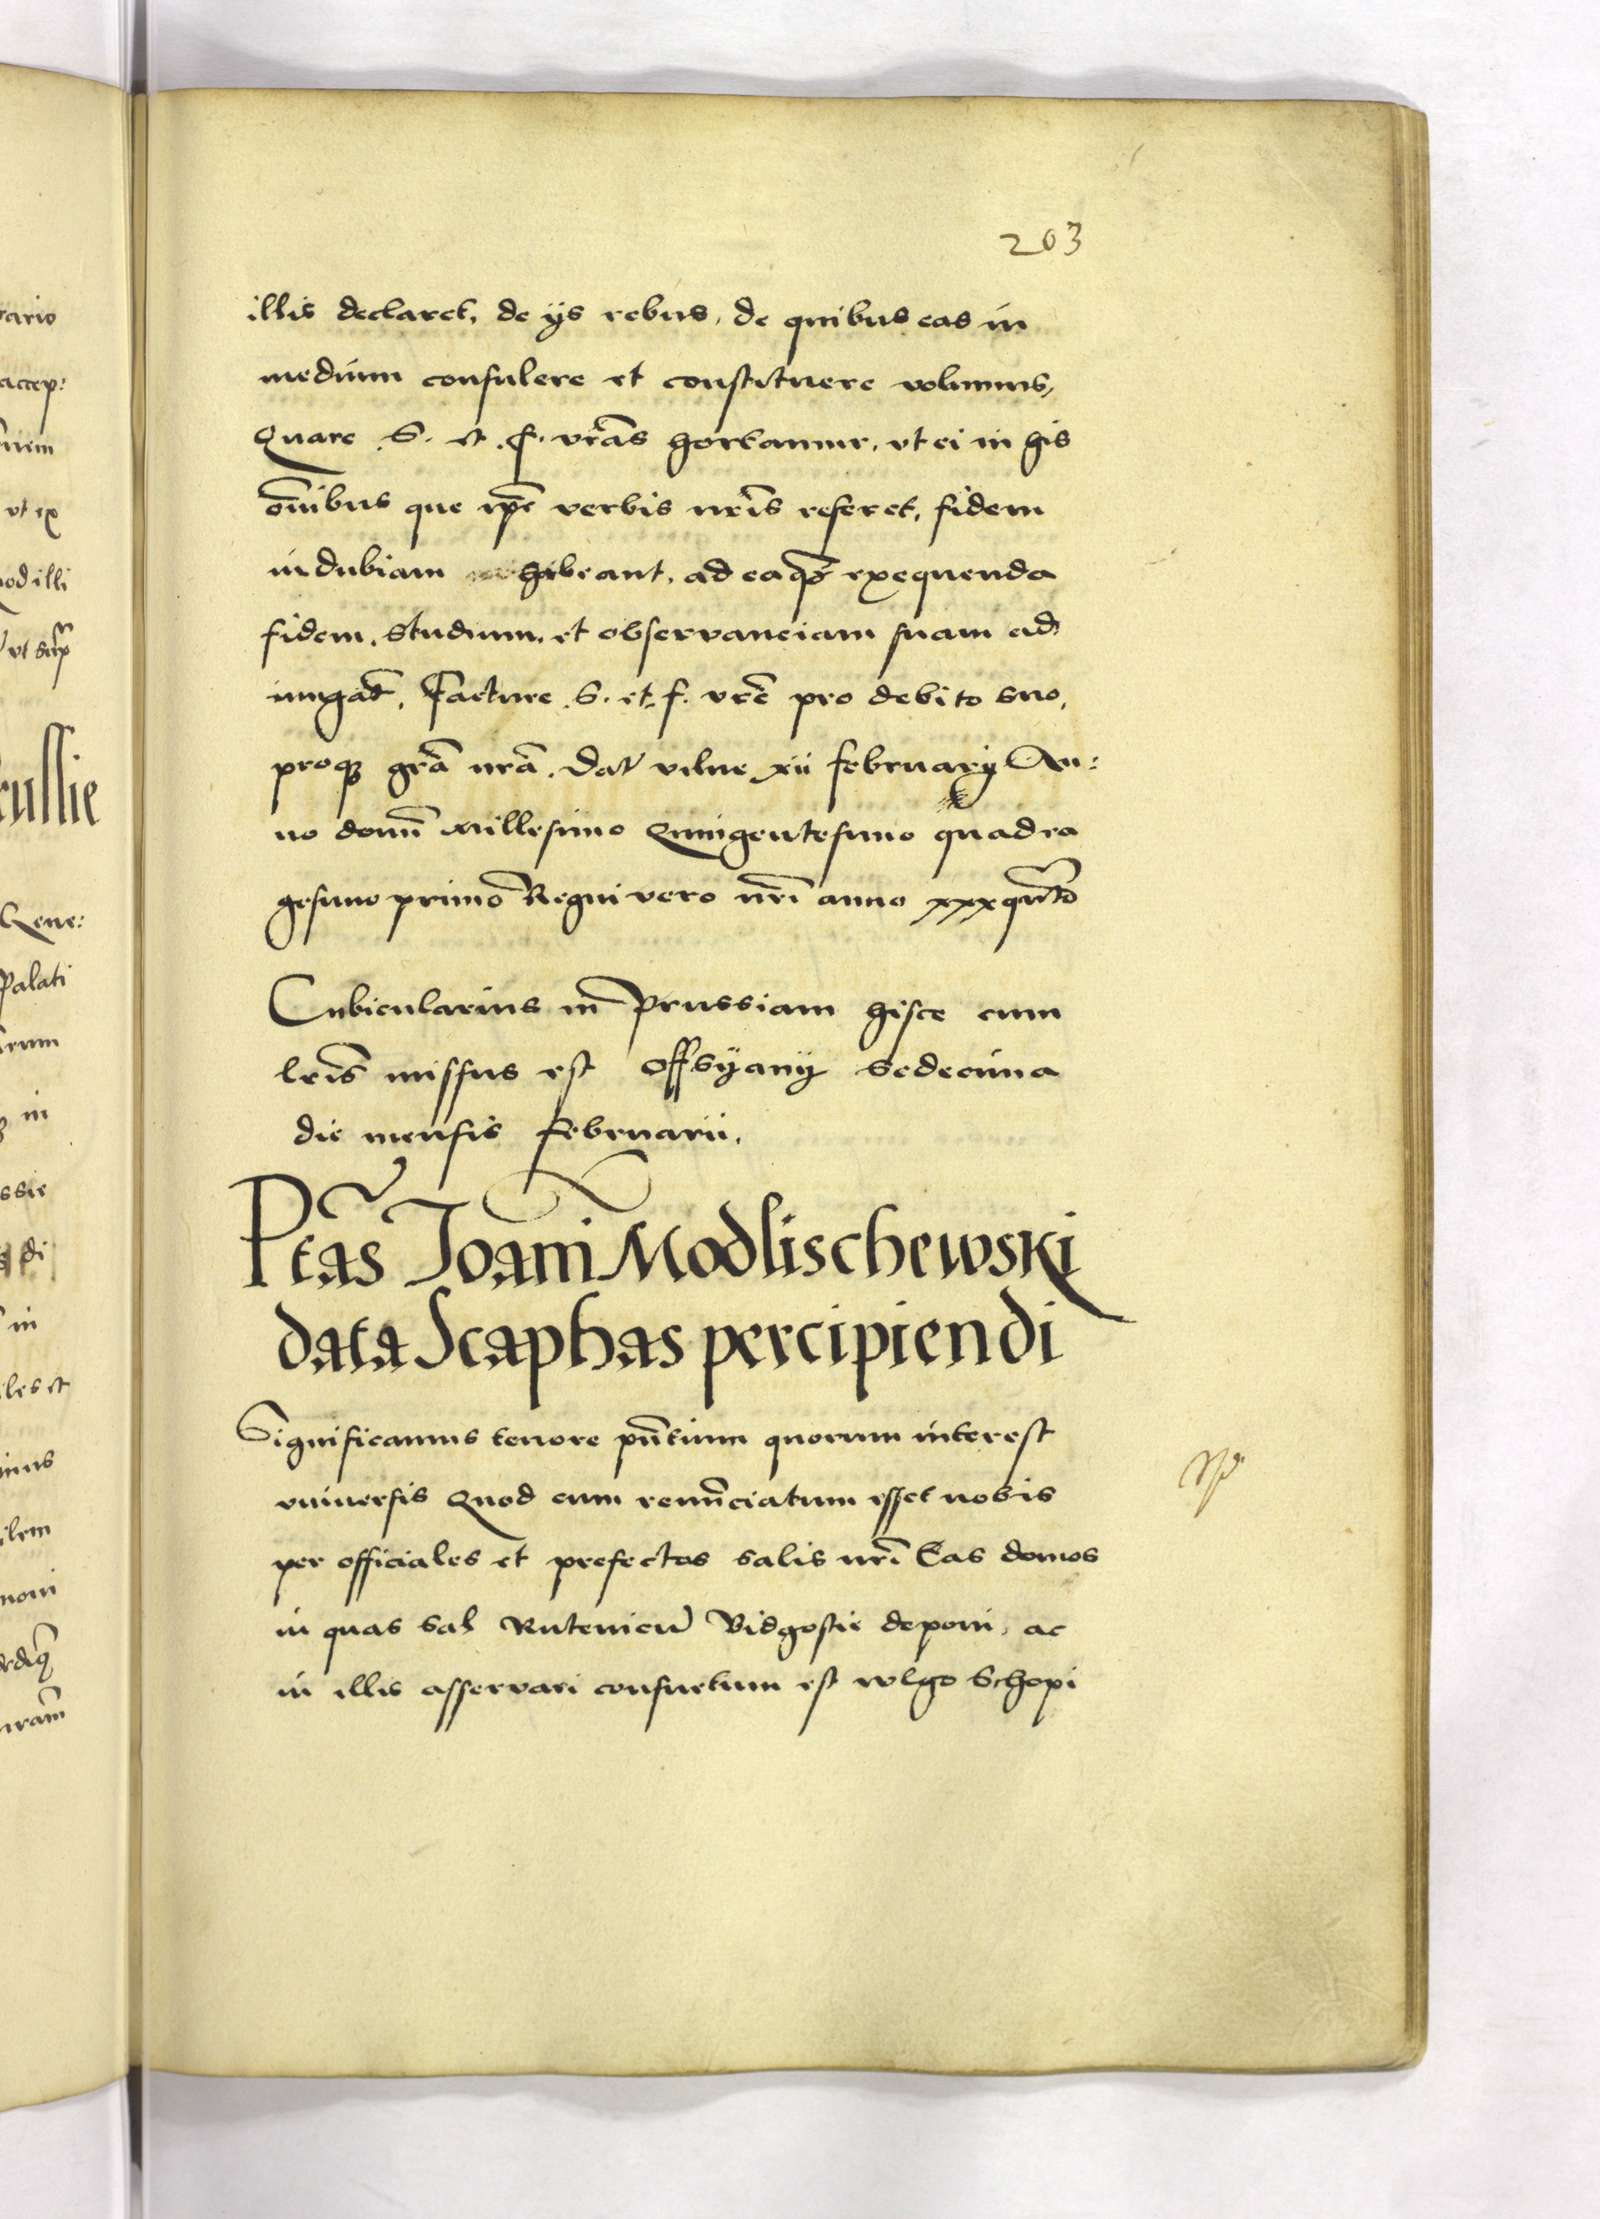 203
illis declaret, de ijs rebus, de quibus eas in
medium consulere et constituere volumus,
Quare .S. et .f. vras hortamur, vt ei in his
oibus que ipe verbis nris referet, fidem
indubiam habeant, ad eaqȝ exequenda
fidem, studium, et observanciam suam ad
iungat, Facture .S. et .f. vre pro debito suo,
proqȝ gra nra. Dat vilne xii februarij An:
no domi Millesimo Quingentesimo quadra
gesimo primo Regni vero nri anno xxxqnto
Cubicularius in Prussiam hisce cum
lris missus est Offsyany sedecima
die mensis februarii.
Ptas Joani Modlischewski
data Scaphas percipiendi
Significamus tenore pntium quorum interest
vniuersis Quod cum renunciatum esset nobis
per officiales et prefectos salis nri Eas domos
in quas sal Rutenicu Bidgostie deponi, ac
in illis asservari consuetum est wlgo Schopi
ario
accep:
nem
vt ex
od illi
vt
russie
Gene:
Palati
rum
in
ssie
di
in
iles et
imus
ilem
noni
nram